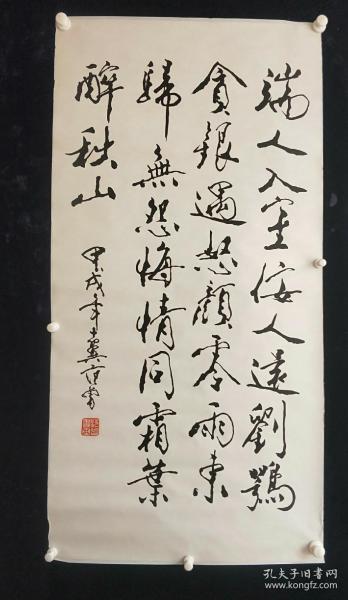 端人入室佞人还劉鶚
貪銀遇怒顏零雨東
歸無怨悔情同霜葉
醉秋山
甲戌年十翼范曾
孔夫子旧书网
www.kongfz.com